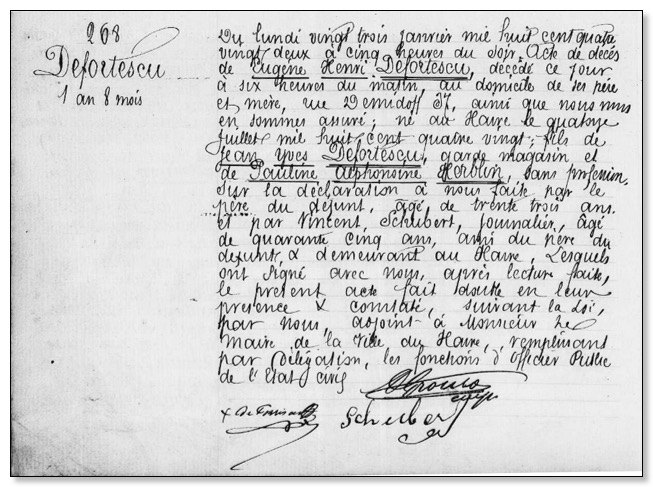 268
Defortescu
1 an 8 mois
Du lundi vingt trois janvier mil huit cent quatre
vingt deux à cinq heures du soir. Acte de décès
de Eugène Henri Defortescu, décédé ce jour
à six heures du matin, au domicile de ses père
et mère, rue Demidoff 37, ainsi que nous nous
en sommes assuré; né au Havre le quatorze
Juillet mil huit cent quatre vingt; fils de
Jean Yves Defortescu, garde magasin et
de Pauline Alphonsine Herblin, sans profession.
Sur la déclaration à nous faite par le
père du défunt, âgé de trente trois ans.
et par Vincent, Schubert, Journalier, âgé
de quarante cinq ans, ami du père du
defunt & demeurant au Havre, Lesquels
ont signé avec nous, après lecture faite,
le présent acte fait double en leur
présence & constaté, suivant la Loi,
par nous, adjoint à Monsieur Le
Maire de la Ville du Havre, remplissant
par délégation, les fonctions d'Officier Public
de l'Etat civil
Schubert